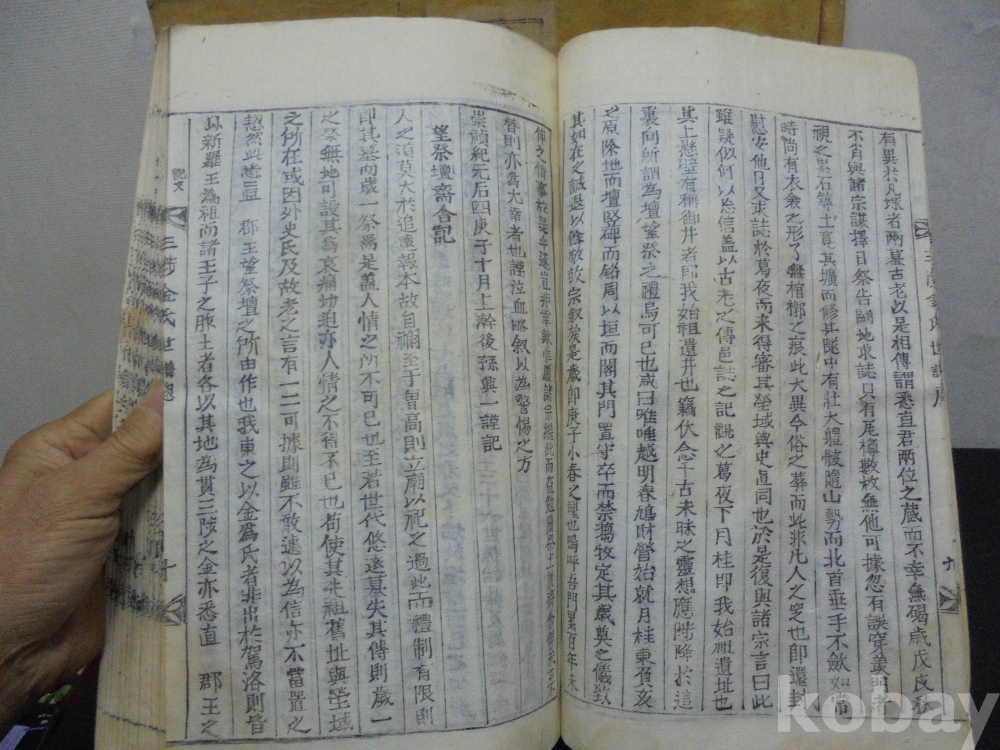 有異於凡壞者兩墓古老以是相傳謂悉直君兩位之藏而不幸無碣歲戊戌春
不肖與諸宗謀擇日祭告闢地求誌只有瓦樽數枚無他可據忽有誤穿羨門者
視之累石築土覓其壙而修其隧中有壯大體骸隨山勢而北首垂手不斂
時尚有衣衾之形了無棺槨之痕此大異今俗之葬而此非凡人之窆也卽還封
慰安他日又求誌於葛夜而來得審其塋域與史眞同也於是復與諸宗言曰此
雖疑似何以爲信盖以古老之傳邑誌之記觀之葛夜下月桂卽我始祖遺址也
其上懸壁有稱御井者卽我始祖遺井也竊伏念千古未昧之靈想應陟降於這
裏向所謂爲壇望祭之禮烏可已也咸曰唯唯越明春鳩財營始就月桂東負亥
之原除地而壇竪碑而銘周以垣而閣其門置守卒而禁蒭牧定其歲奠之儀致
其如在之誠是以餘敢敦宗叙族是歲卽庚子小春之望也嗚呼吾門累百年未
伸之情
督則亦爲大幸者也謹泣血略叙以爲警惕之方
崇禎紀元后四庚子十月上澣後孫興一謹記
望祭壇齋舍記
人之道莫大於追遠報本故自禰至于曾高則立廟以祀之過此而禮制有限則
卽其墓而歲一祭焉是盖人情之所不可已也至若世代悠遠墓失其傳則歲一
之祭無地可設其爲哀痛切迫亦人情之不得不已也苟使其先祖舊址與塋域
之所在或因外史氏及故老之言有一二可據則雖不敢遽以爲信亦不當置之
恝然此悉直 郡王望祭壇之所由作也我東之以金爲氏者非出於駕洛則皆
以新羅王爲祖而諸王子之胙土者各以其地爲貫三陟之金亦悉直 郡王之
三陟金氏世譜
記文
十
九
kobay